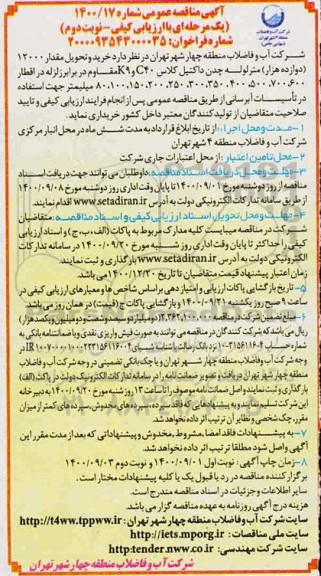 آگهی مناقصه عمومی شماره ۱۴۰۰/۱۷
(یک مرحله ای با ارزیابی کیفی - نوبت دوم)
شماره فراخوان: ۲۰۰۰۰۹۳۵۴۳۰۰۰۰۳۵
شرکت آب و فاضلاب منطقه چهار شهر تهران در نظر دارد خرید و تحویل مقدار ۱۲۰۰۰
(دوازده هزار) متر لوله چدن داکتیل کلاس C۴۰ و K۹ مقاوم در برابر زلزله در اقطار
۷۰۰، ۶۰۰، ۵۰۰، ۴۰۰، ۳۵۰، ۳۰۰، ۲۵۰، ۲۰۰، ۱۵۰، ۱۰۰، ۸۰ میلیمتر جهت استفاده
در تأسیسات آبرسانی از طریق مناقصه عمومی پس از انجام فرایند ارزیابی کیفی و تایید
صلاحیت متقاضیان از تولید کنندگان معتبر داخل کشور خریداری نماید.
۱- مدت و محل اجرا: از تاریخ ابلاغ قرارداد به مدت شش ماه در محل انبار مرکزی
شرکت آب و فاضلاب منطقه ۴ شهر تهران
۲- محل تامین اعتبار: از محل اعتبارات جاری شرکت
۳- مهلت و محل دریافت اسناد مناقصه: داوطلبان می توانند جهت دریافت اسناد
مناقصه از روز دوشنبه مورخ ۱۴۰۰/۰۹/۰۱ تا پایان وقت اداری روز دوشنبه مورخ ۱۴۰۰/۰۹/۰۸
از طریق سامانه تدارکات الکترونیکی دولت به آدرس www.setadiran.ir اقدام نمایند.
۴- مهلت و محل تحویل اسناد ارزیابی کیفی و اسناد مناقصه: متقاضیان
شرکت در مناقصه میبایست کلیه مدارک مربوط به پاکات (الف، ب، ج) و اسناد ارزیابی
کیفی را حداکثر تا پایان وقت اداری روز شنبه مورخ ۱۴۰۰/۰۹/۲۰ در سامانه تدارکات
الکترونیکی دولت به آدرس www.setadiran.ir بارگذاری و ثبت نمایند.
زمان اعتبار پیشنهاد قیمت متقاضیان تا تاریخ ۱۴۰۰/۱۲/۲۰ می باشد.
۵- تاریخ بازگشایی پاکات ارزیابی و امتیاز دهی براساس شاخص ها و معیارهای ارزیابی کیفی در
ساعت ۹ صبح روز یکشنبه ۱۴۰۰/۰۹/۲۱ و بازگشایی پاکات ج (قیمت) در همان روز می باشد.
۶- مبلغ تضمین شرکت در مناقصه
ریال می باشد که شرکت کنندگان در مناقصه می توانند به صورت فیش واریزی نقدی و یا ضمانتنامه بانکی به
وجه شرکت آب و فاضلاب منطقه چهار شهر تهران و یا چک بانکی تضمینی در وجه شرکت آب و فاضلاب
منطقه چهار شهر تهران دریافت و تصویر ضمانت نامه را در سامانه تدارکات الکترونیک دولت در پاکت (الف)
این شرکت تسلیم نمایند و به پیشنهادهایی که فاقد سپرده، سپرده های مخدوش، سپرده های کمتر از میزان
مقرر، چک شخصی و نظایر آن ترتیب اثر داده نخواهد شد.
۷- به پیشنهادات فاقد امضا، مشروط، مخدوش و پیشنهاداتی که بعد از مدت مقرر این
آگهی واصل شود مطلقا ترتیب اثر داده نخواهد شد.
۸- زمان چاپ آگهی: نوبت اول ۱۴۰۰/۰۹/۰۱ و نوبت دوم ۱۴۰۰/۰۹/۰۳
برگزار کننده مناقصه در رد یا قبول یک یا کلیه پیشنهادات مختار است.
سایر اطلاعات و جزئیات در اسناد مناقصه مندرج است.
هزینه درج آگهی روزنامه به عهده مناقصه گزار می باشد.
سایت شرکت آب و فاضلاب منطقه چهار شهر تهران: http://t4ww.tppww.ir
سایت ملی مناقصات: http://iets.mporg.ir
سایت شرکت مهندسی: http:tender.nww.co.ir
شرکت آب و فاضلاب منطقه چهار شهر تهران